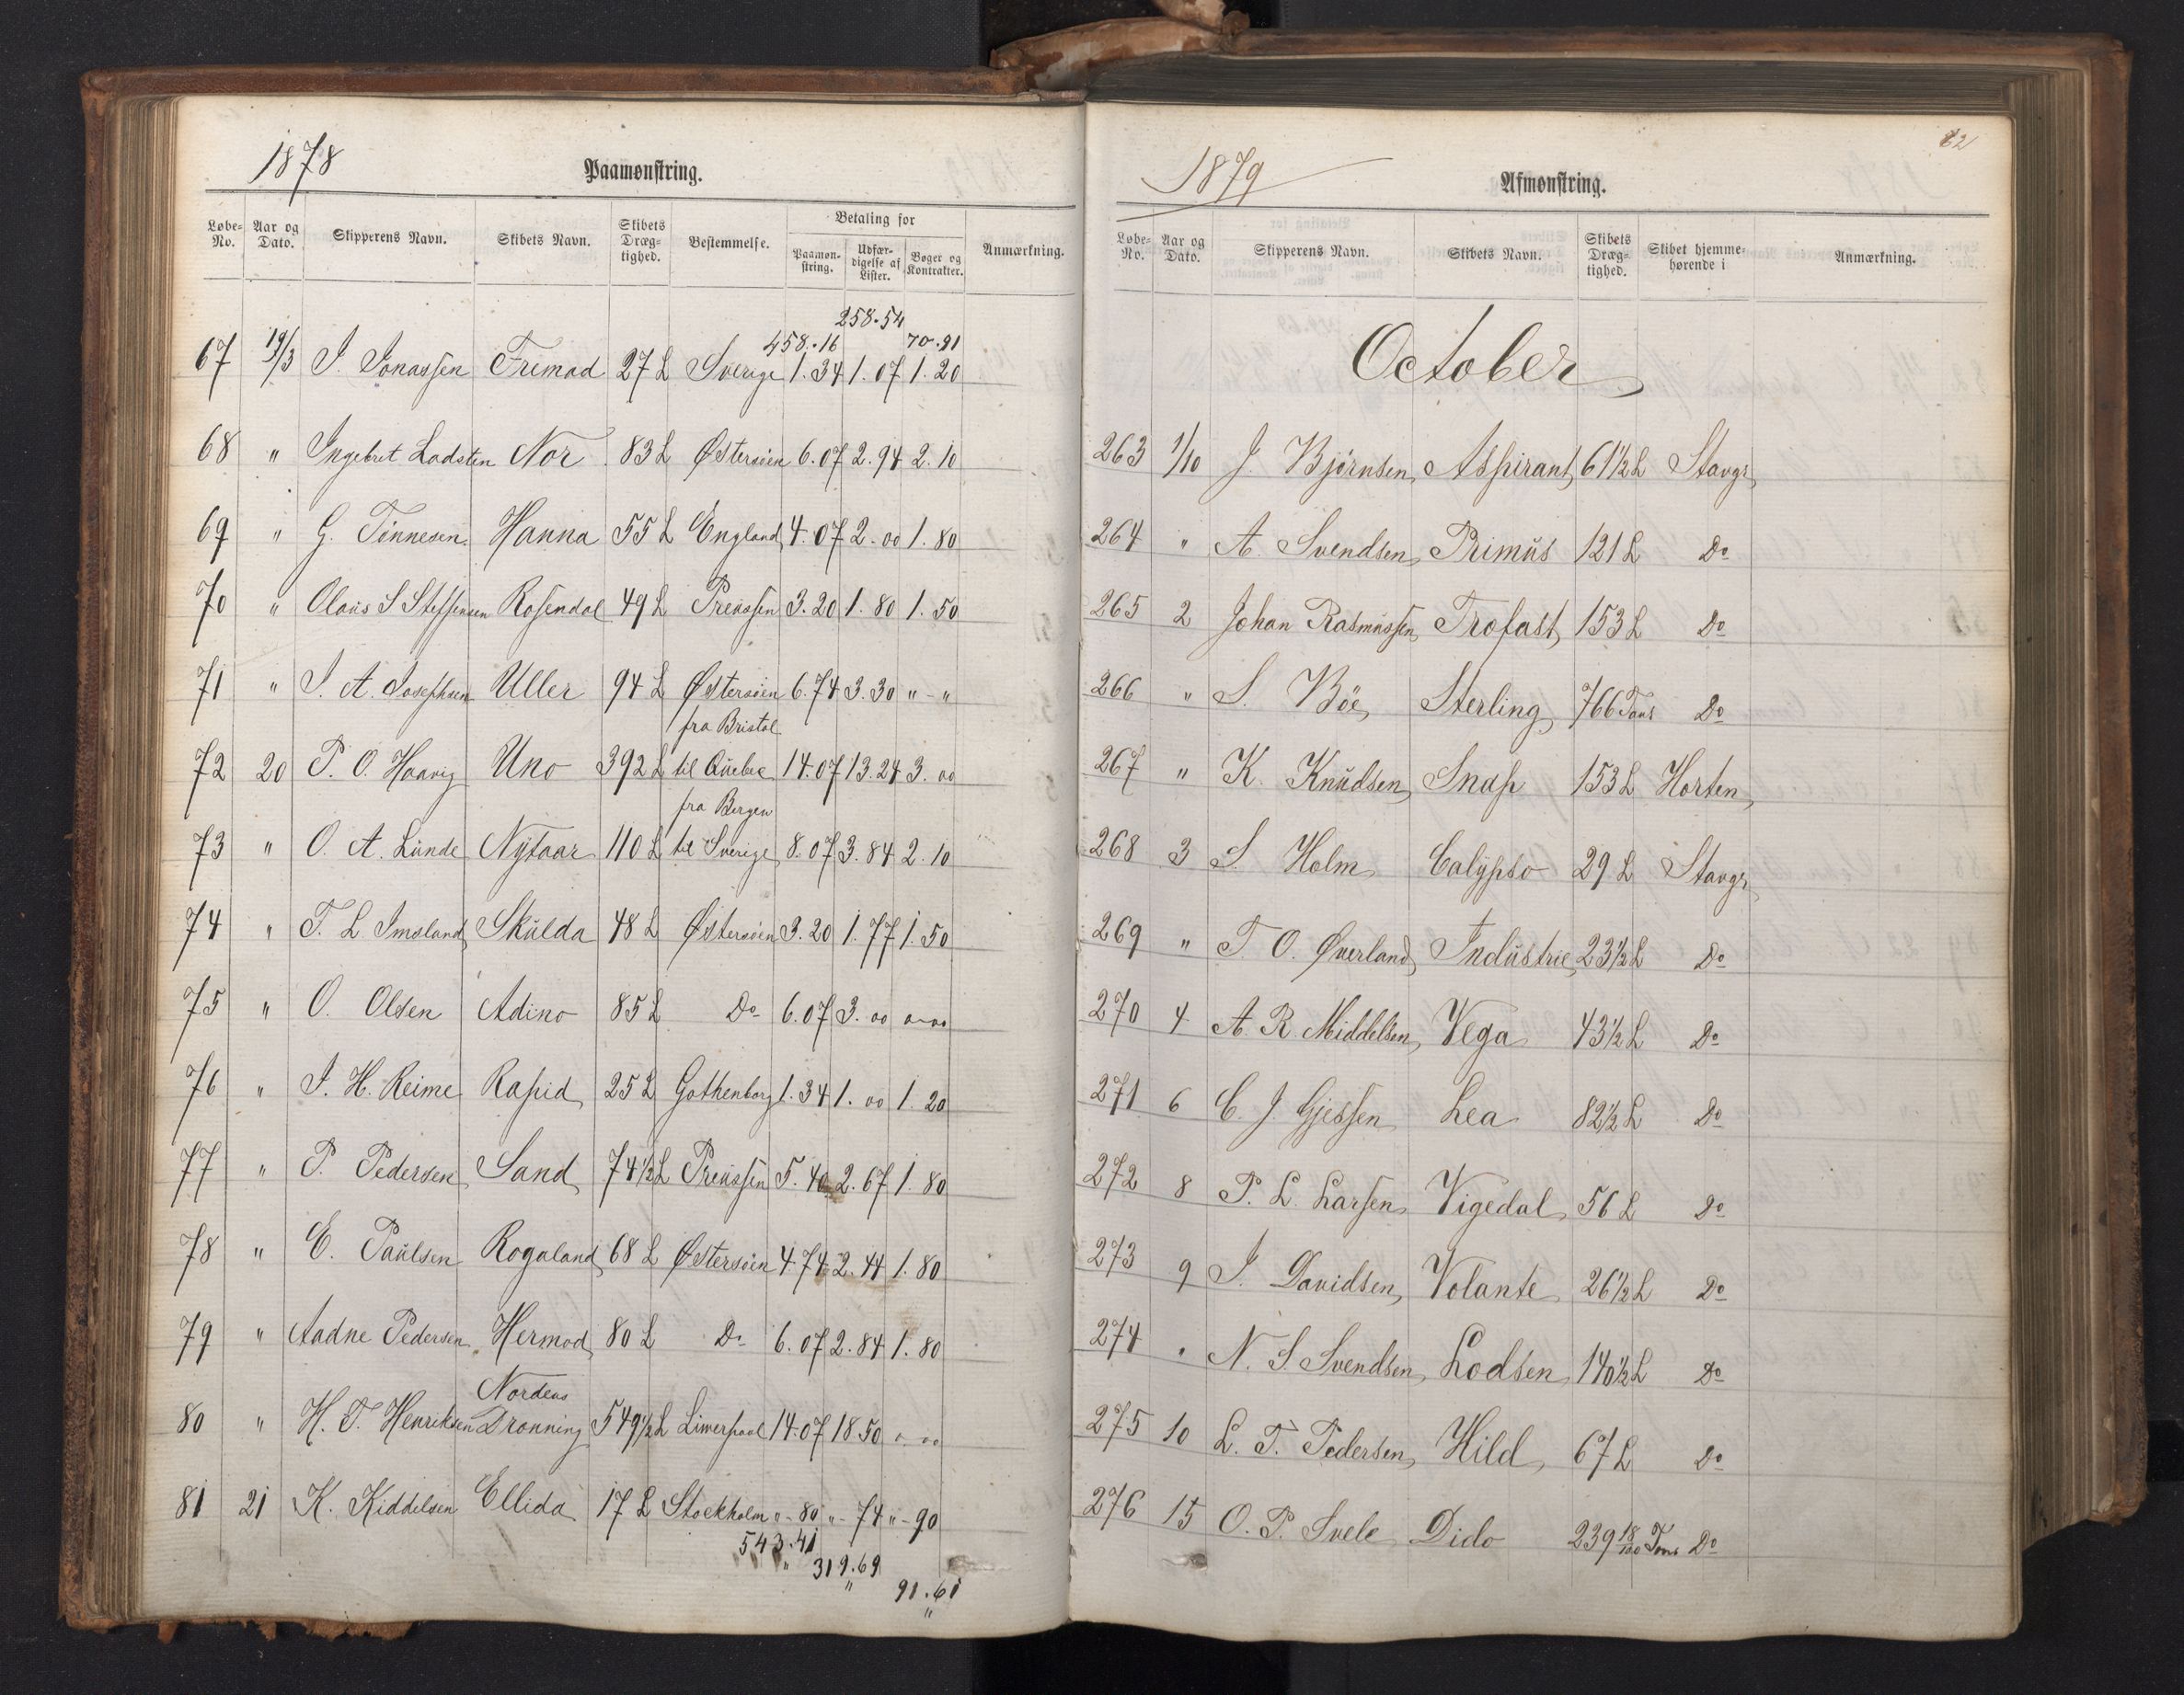 1878
Paamønstring.
Løbe- No. Aar og Dato. Skipperens Navn. Skibets Navn. Skibets Dræg- tighed. Bestemmelse. Betaling for Paamøn- string. Udfær- digelse af Lister. Bøger og Kontrakter. Anmærkning.
258.54
458.16 70.91
67 19/3 J. Jonassen Fremad 27 L Sverige 1.34 1.07 1.20
68 " Ingebret Ladsten Nor 83 L Østersöen 6.07 2.94 2.10
69 " G. Tönnesen Hanna 55 L England 4.07 2.00 1.80
70 " Olaus S Steffensen Rosendal 49 L Preussen 3.20 1.80 1.50
71 " J. A. Josephsen Uller 94 L Østersöen 6.74 3.30 " - "
fra Bristol
72 20 P. O. Haavig Uno 392 L til Quebec 14.07 13.24 3.00
fra Bergen
73 " O. A. Lunde Nytaar 110 L til Sverige 8.07 3.84 2.10
74 " T. L Imsland Skulda 48 L Østersöen 3.20 1.77 1.50
75 " O. Olsen Adino 85 L Do 6.07 3.00
76 " J. H. Reime Rapid 25 L Gothenborg 1.34 1.00 1.20
77 " P. Pedersen Sand 74 1/2 L Preussen 5.40 2.67 1.80
78 " E. Paulsen Rogaland 68 L Østersöen 4.74 2.44 1.80
79 " Aadne Pedersen Hermod 80 L Do 6.07 2.84 1.80
Nordens
80 " H. T. Henriksen Dronning 549 1/2 L Liverpool 14.07 18.50
81 21 K. Kiddelsen Ellida 17 L Stockholm "-80 "-74 "-90
543.41
" 319.69
" 91.61
"
1879
Afmønstring.
62
Løbe- No. Aar og Dato. Skipperens Navn. Skibets Navn. Skibets Dræg- tighed. Skibet hjemme- hørende i Anmærkning.
October
263 1/10 J. Bjørnsen Aspirant 61 1/2 L Stavgr
264 " A. Svendsen Primus 121 L Do
265 2 Johan Rasmussen Trofast 153 L Do
266 " S. Böe Sterling 766 Tons Do
267 " K. Knudsen Snap 153 L Horten
268 3 S. Holm Calypso 29 L Stavgr
269 " T. O. Øverland Industrie 23 1/2 L Do
270 4 A. R. Middelsen Vega 43 1/2 L Do
271 6 C. J Gjessen Lea 82 1/2 L Do
272 8 P. L. Larsen Vigedal 56 L Do
273 9 J. Davidsen Volante 26 1/2 L Do
274 " N. S. Svendsen Lodsen 140 1/2 L Do
275 10 L. T. Pedersen Hild 67 L Do
276 15 O. P. Svele Dido 239 18/100 Tons Do